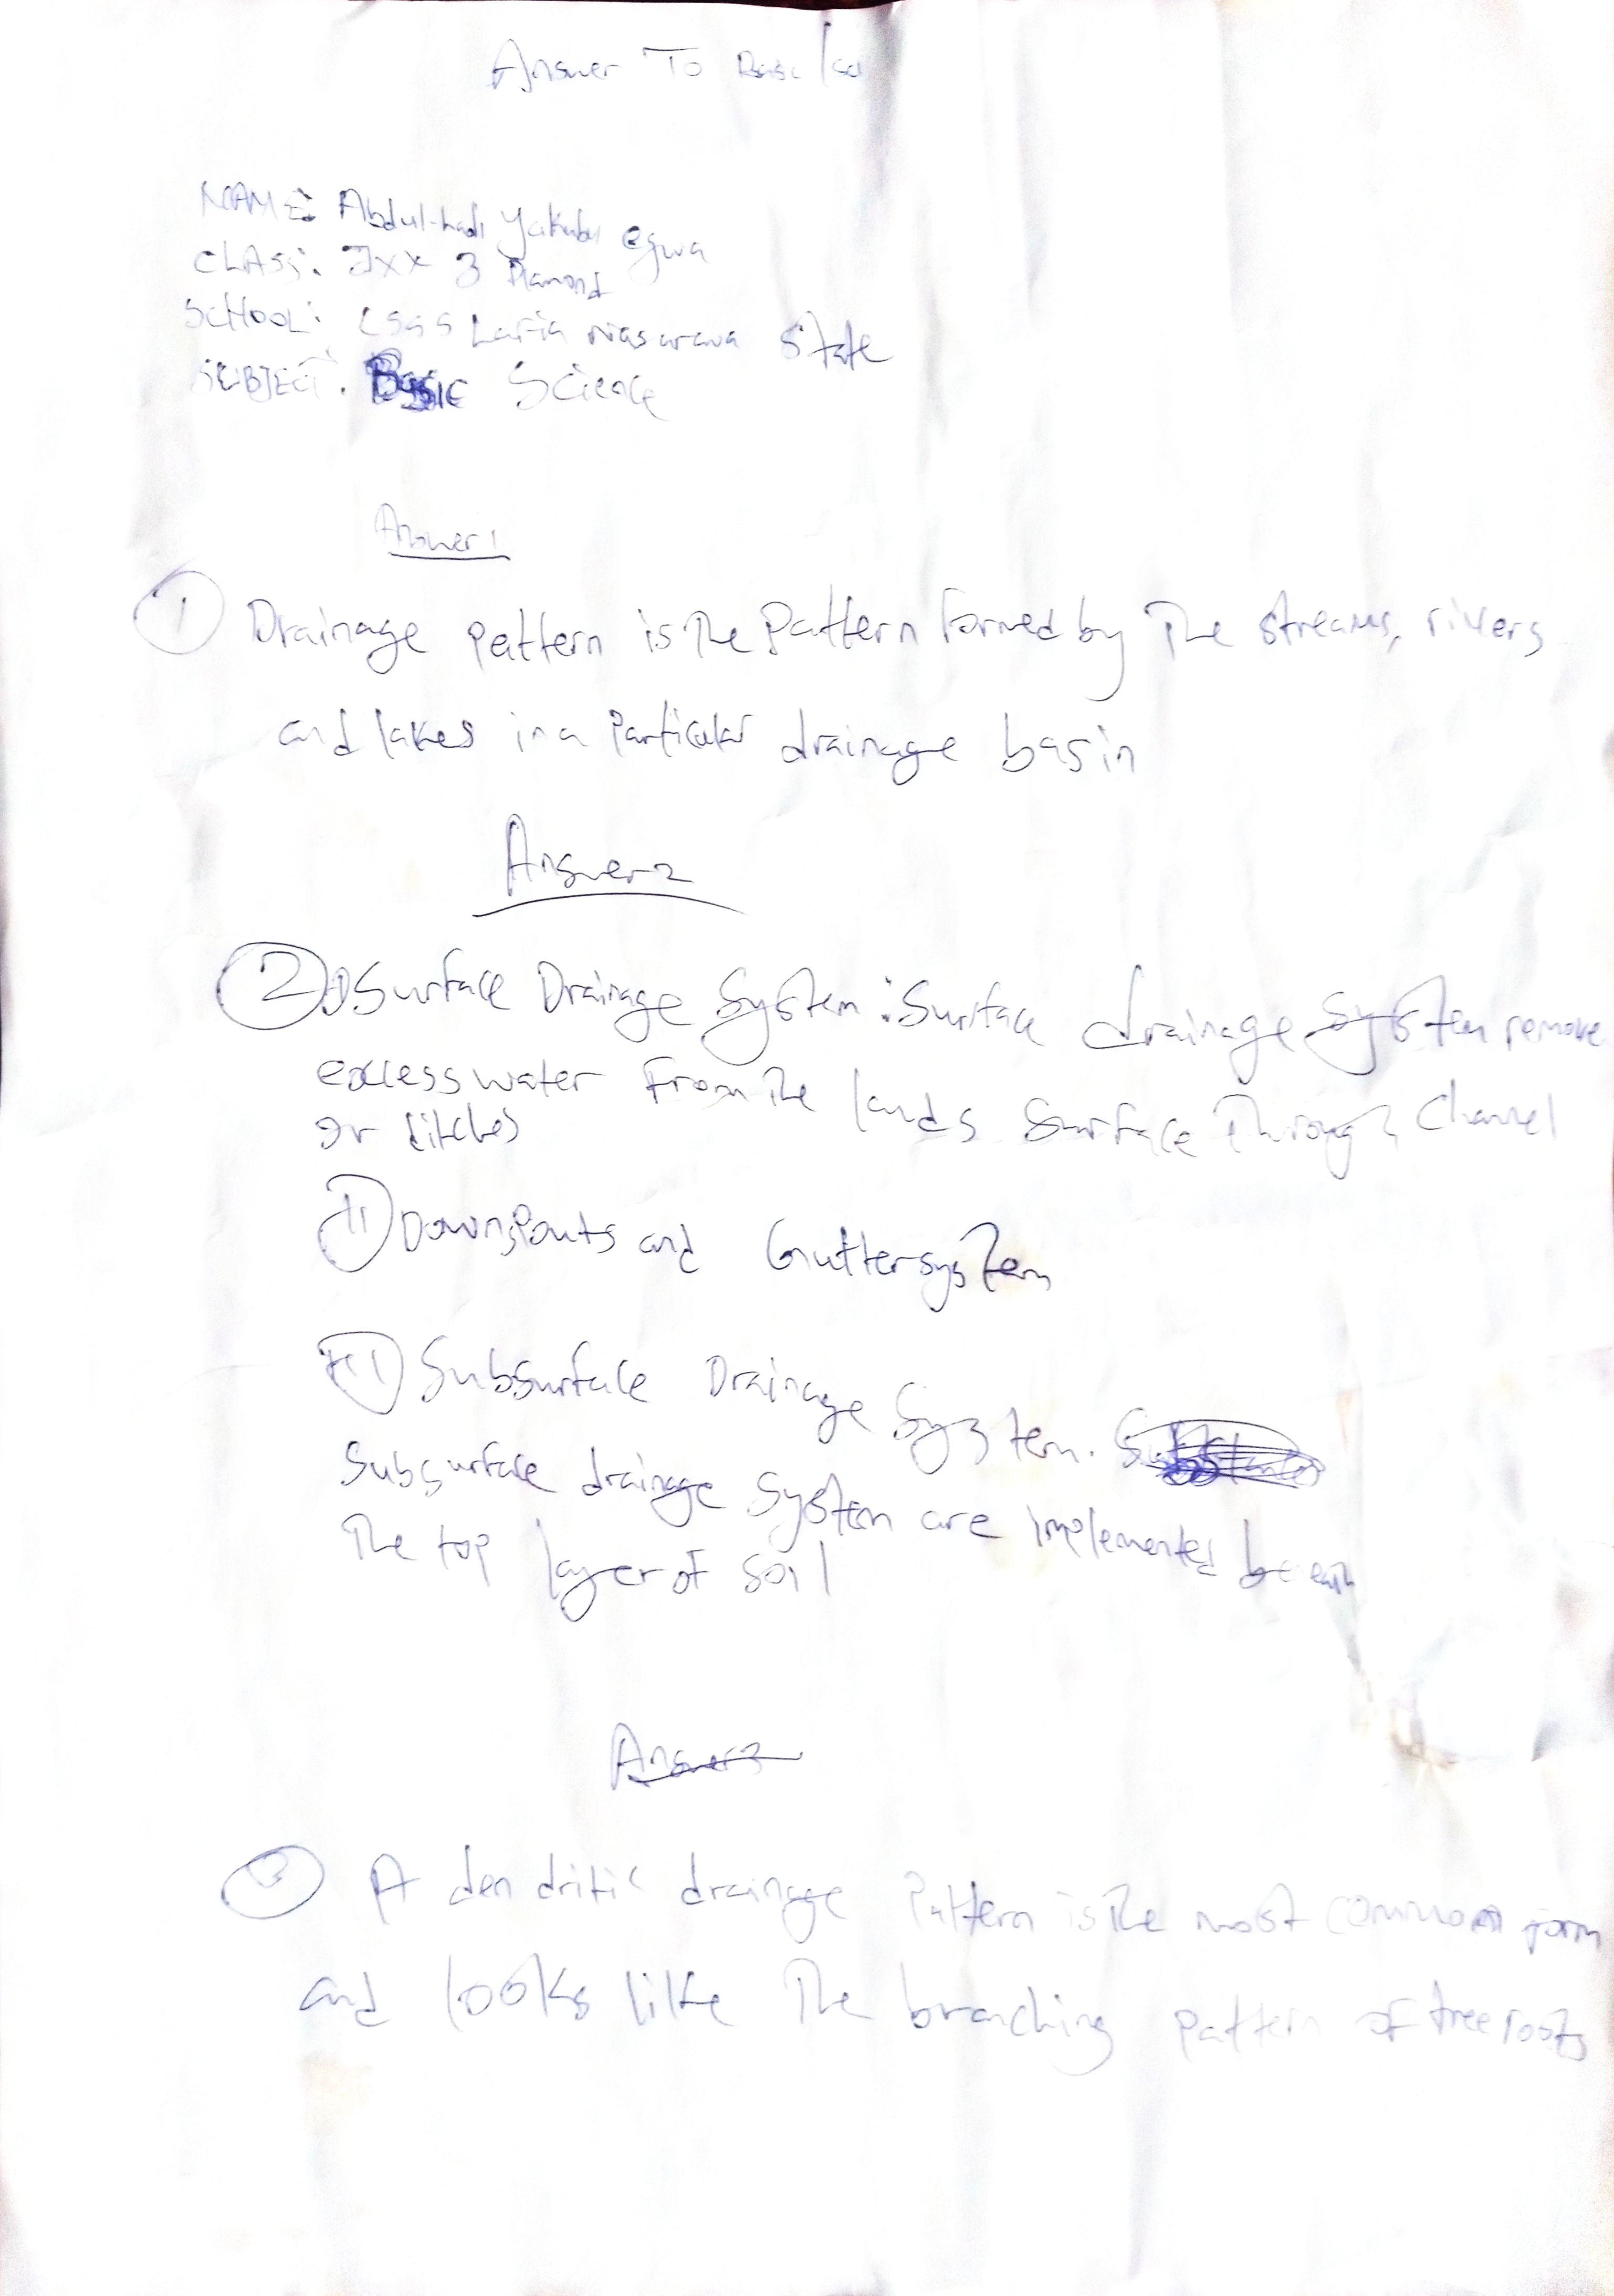 Answer To Basic
NAME: Abdul-hadi Yakubu egwa
CLASS: JXX 3 Diamond
SCHOOL: Lafia Nasarawa State
SUBJECT: Basic Science
Answer 1
1 Drainage pattern is The Pattern formed by The streams, rivers
and lakes in a Particular drainage basin
Answer 2
2 i) Surface Drainage System : Surface drainage System remove
excess water From The lands Surface Through Channel
or ditches
ii) Downspouts and Gutter system
iii) Subsurface Drainage System.
Subsurface drainage System are implemented beneath
The top layer of soil
Answer 3
3 A dendritic drainage Pattern is The most common form
and looks like The branching pattern of tree roots